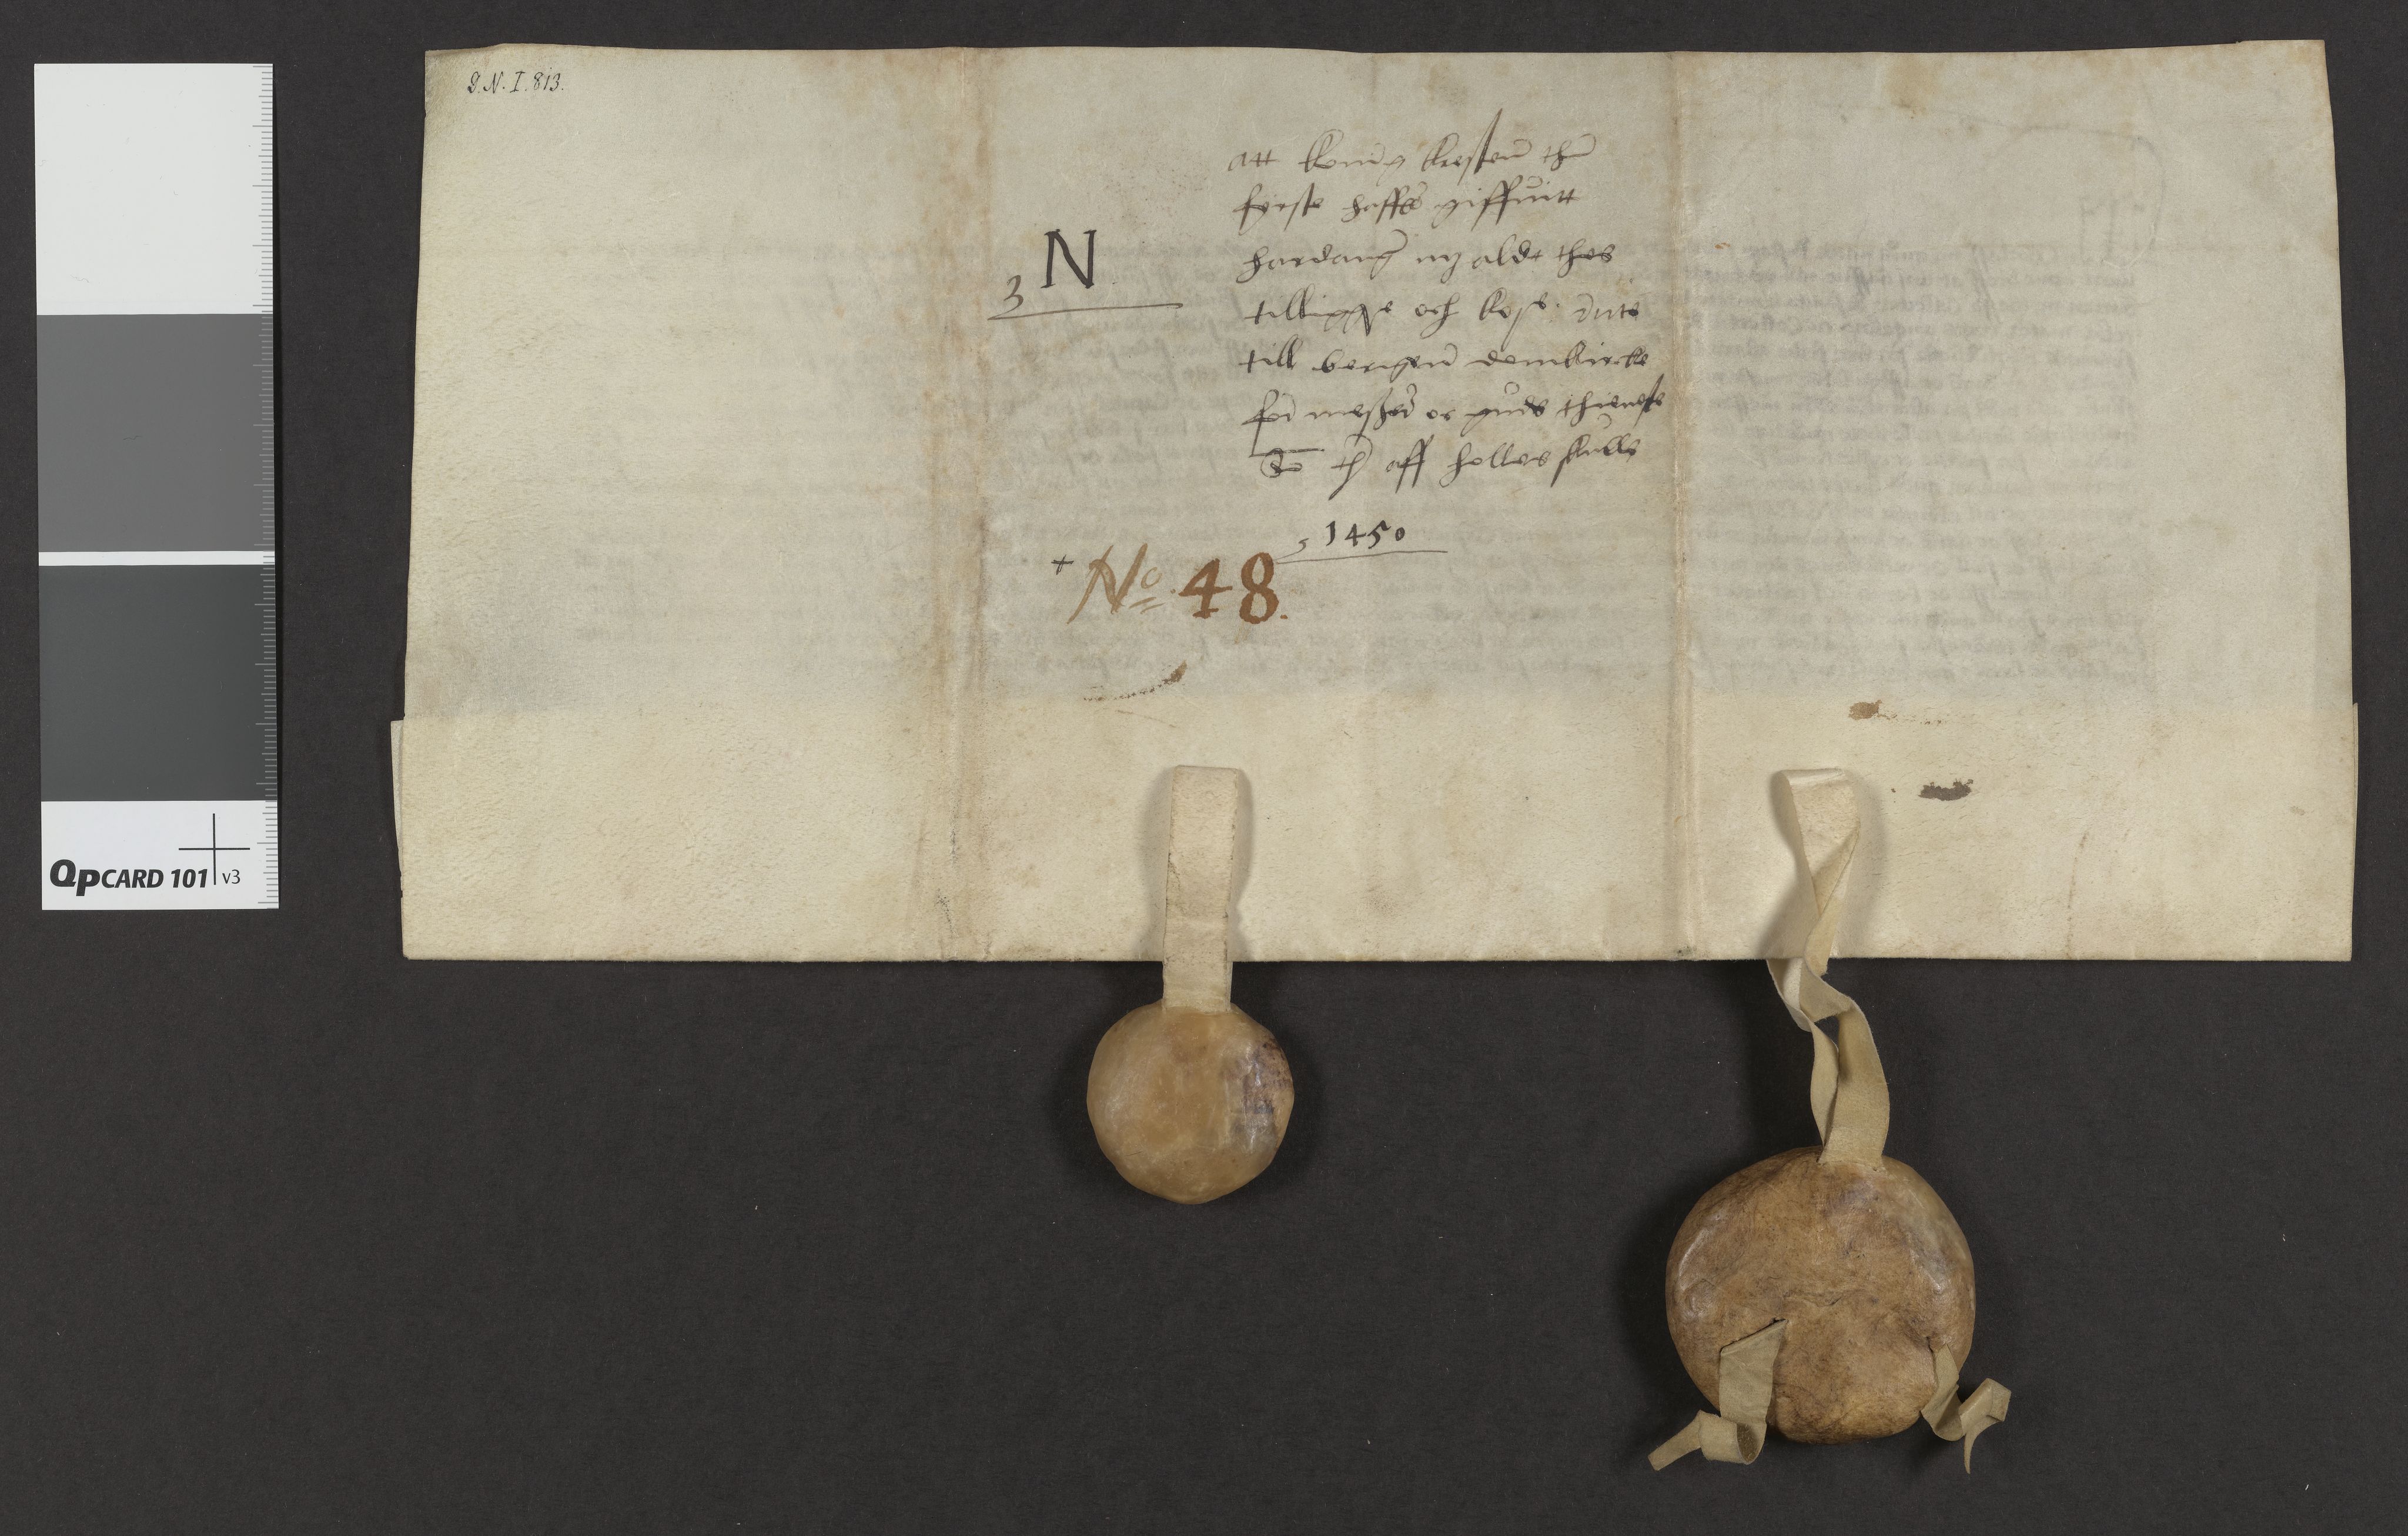 D.N.I.813.
att koning kresten then
fyrste haffer giffuitt
hardang m aldt thes
tilligge och
till bergen domkircke
for messer oc guds thieneste
ther aff holles skulle
N
3
1450
+ No. 48.
QpCARD 101 v3